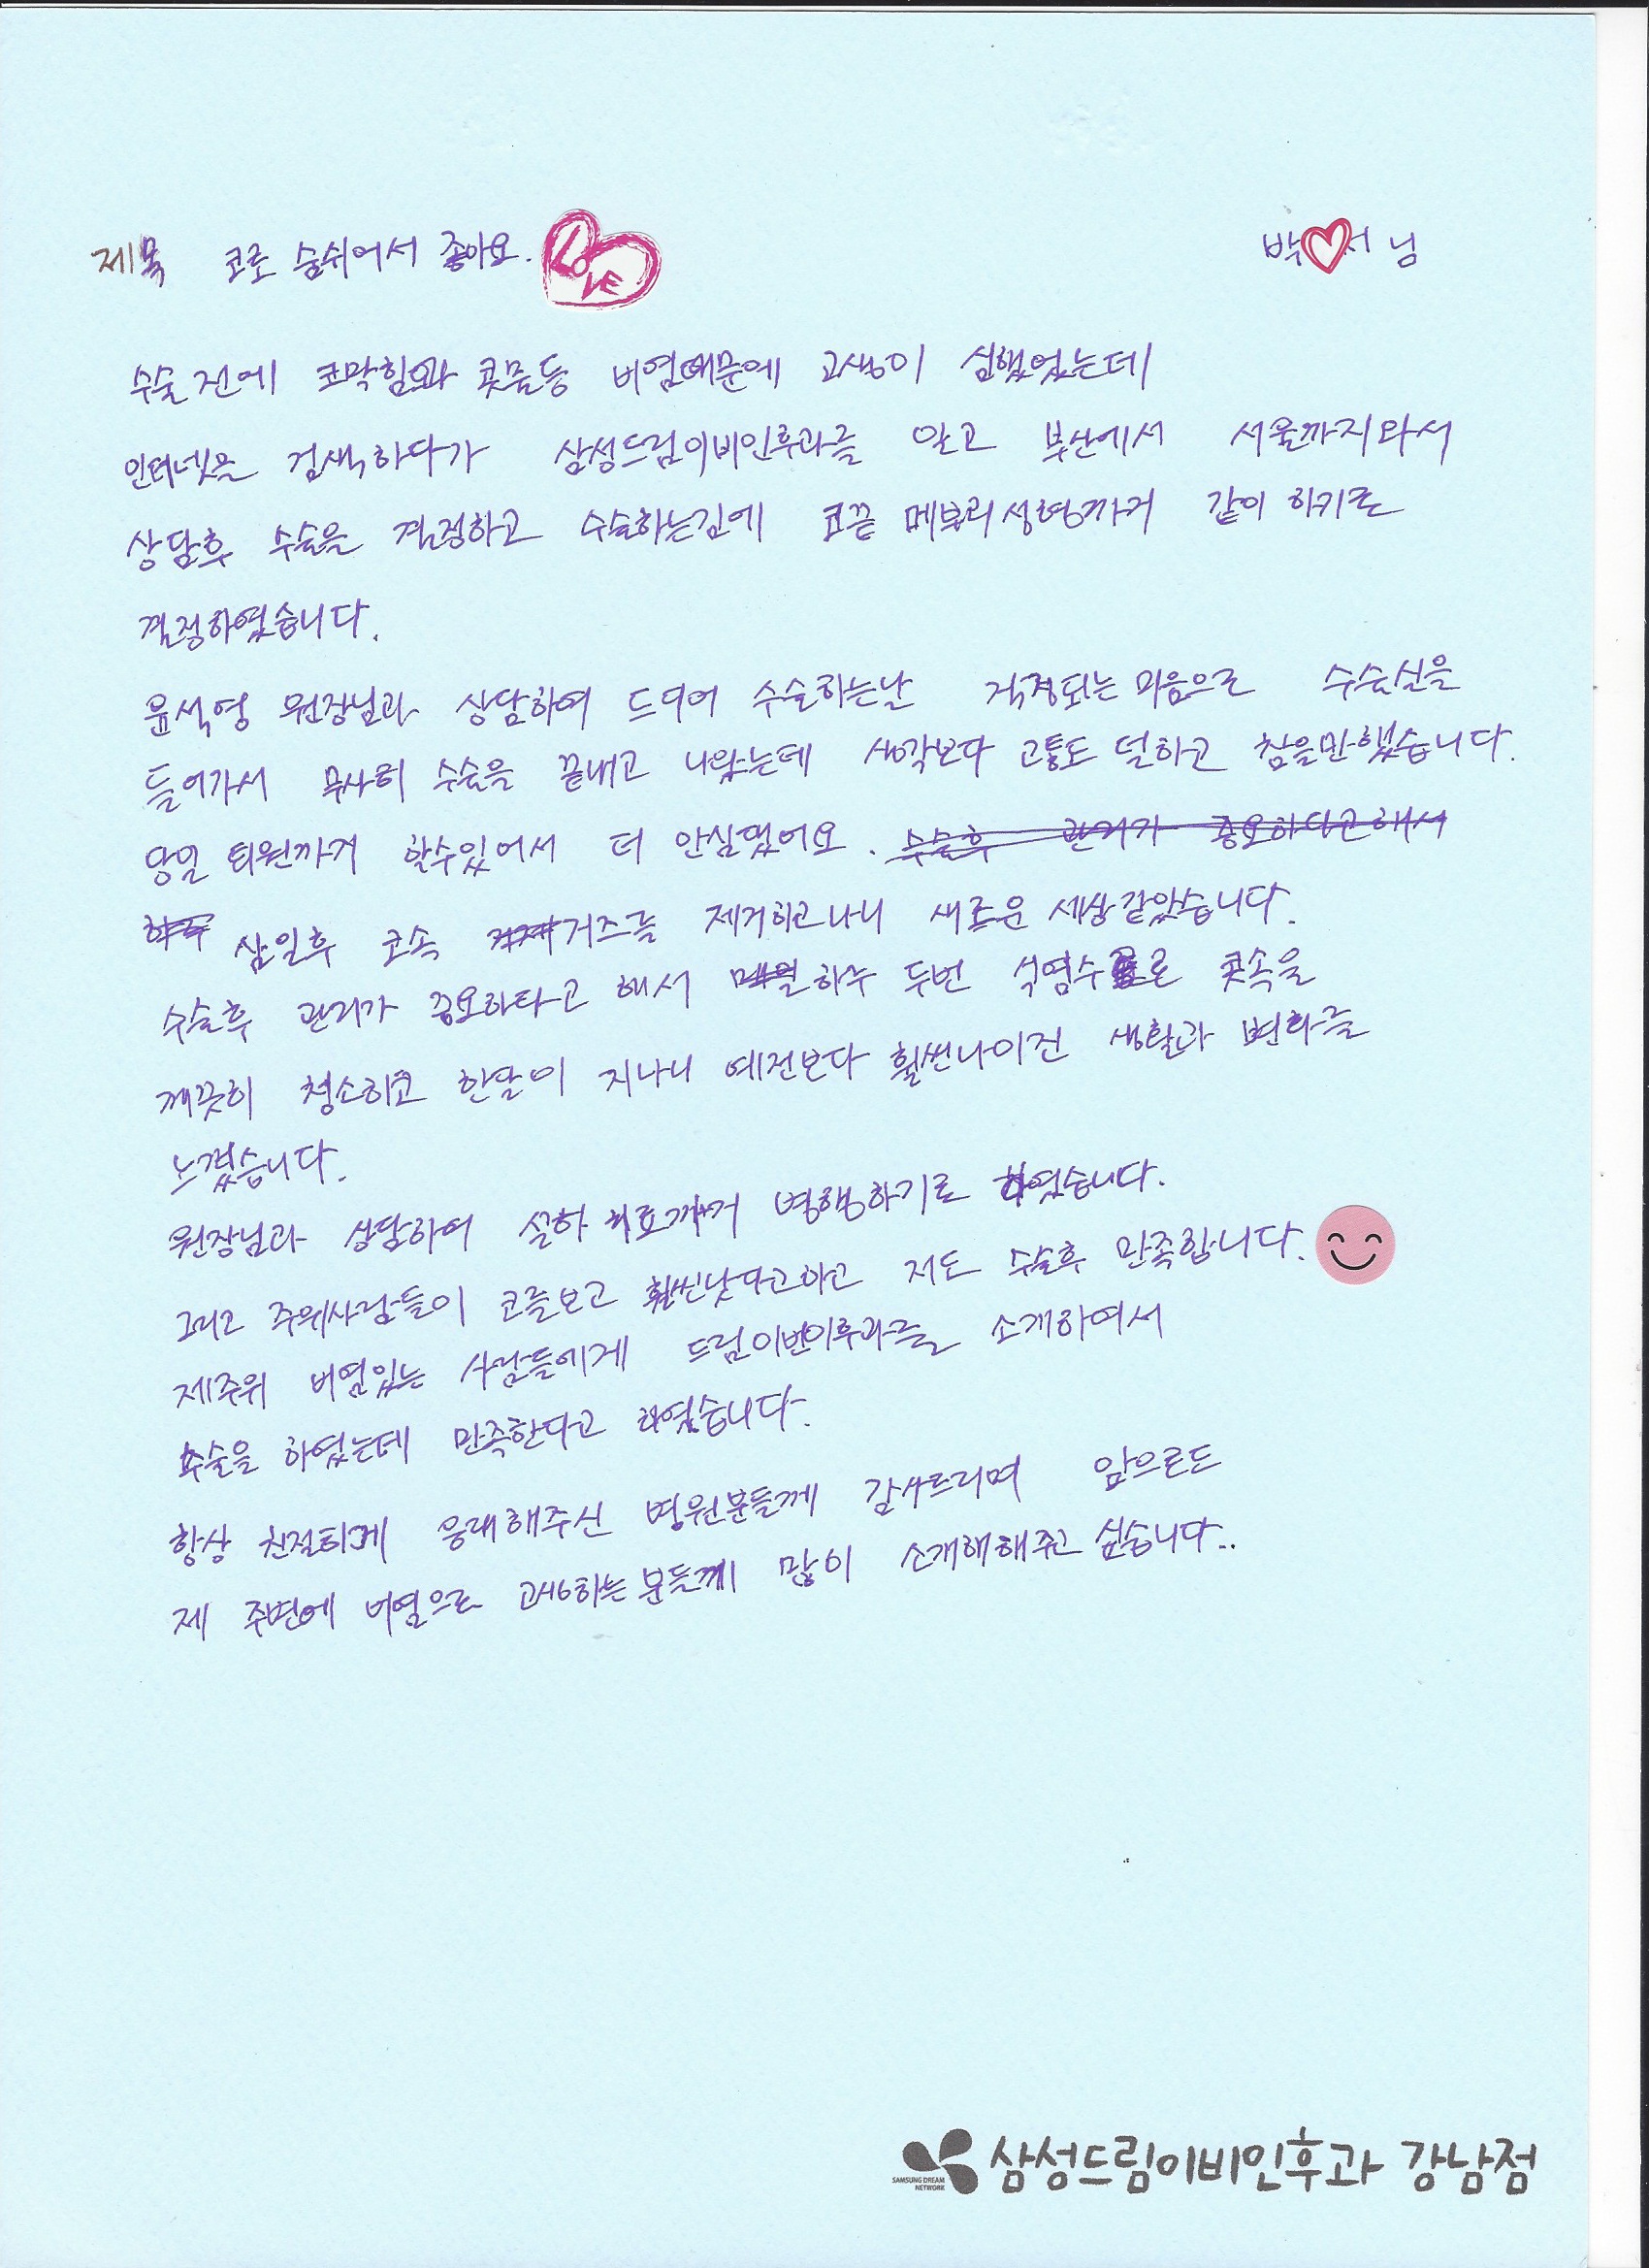 제목 코로 숨쉬어서 좋아요. LOVE 박 서 님
수술전에 코막힘과 콧물등 비염때문에 고생이 심했었는데
인터넷을 검색하다가 삼성드림이비인후과를 알고 부산에서 서울까지와서
상담후 수술을 결정하고 수술하는김에 코끝 메부리성형까지 같이 하기로
결정하였습니다.
윤석영 원장님과 상담하여 드디어 수술하는날 걱정되는 마음으로 수술실을
들어가서 무사히 수술을 끝내고 나왔는데 생각보다 고통도 덜하고 참을만했습니다.
당일 퇴원까지 할수있어서 더 안심됐어요. 수술후 관리가 중요하다고해서
하루 삼일후 코속 거즈를 제거하고나니 새로운 세상같았습니다.
수술후 관리가 중요하다고 해서 매일 하루 두번 식염수로 콧속을
깨끗히 청소하고 한달이 지나니 예전보다 훨씬나아진 생활과 변화를
느꼈습니다.
원장님과 상담하여 설하 치료까지 병행하기로 하였습니다.
그리고 주위사람들이 코를보고 훨씬낫다고하고 저도 수술후 만족합니다.
제주위 비염있는 사람들에게 드림이빈이후과를 소개하여서
수술을 하였는데 만족한다고 하였습니다.
항상 친절하게 응대해주신 병원분들께 감사드리며 앞으로도
제 주변에 비염으로 고생하는분들께 많이 소개해해주고 싶습니다..
SAMSUNG DREAM NETWORK 삼성드림이비인후과 강남점